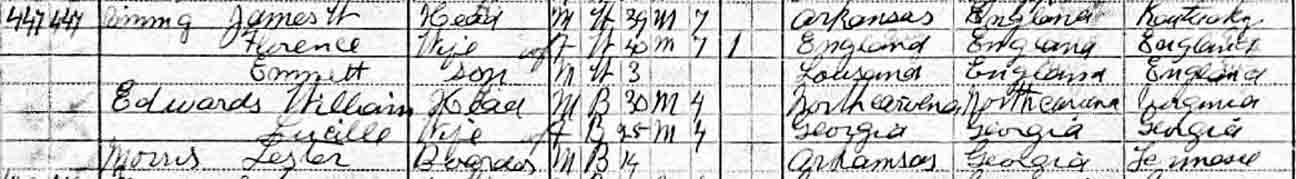 447 447 James W Head M W 39 M 7 Arkansas England
Florence Wife F W 40 M 7 1 England England England
Emmett Son M W 3 Lousiana England England
Edwards William Head M B 30 M 4 North Carolina Virginia
Lucille Wife F B 25 M 4 Georgia Georgia Georgia
Morris Lester M B 14 Arkansas Georgia